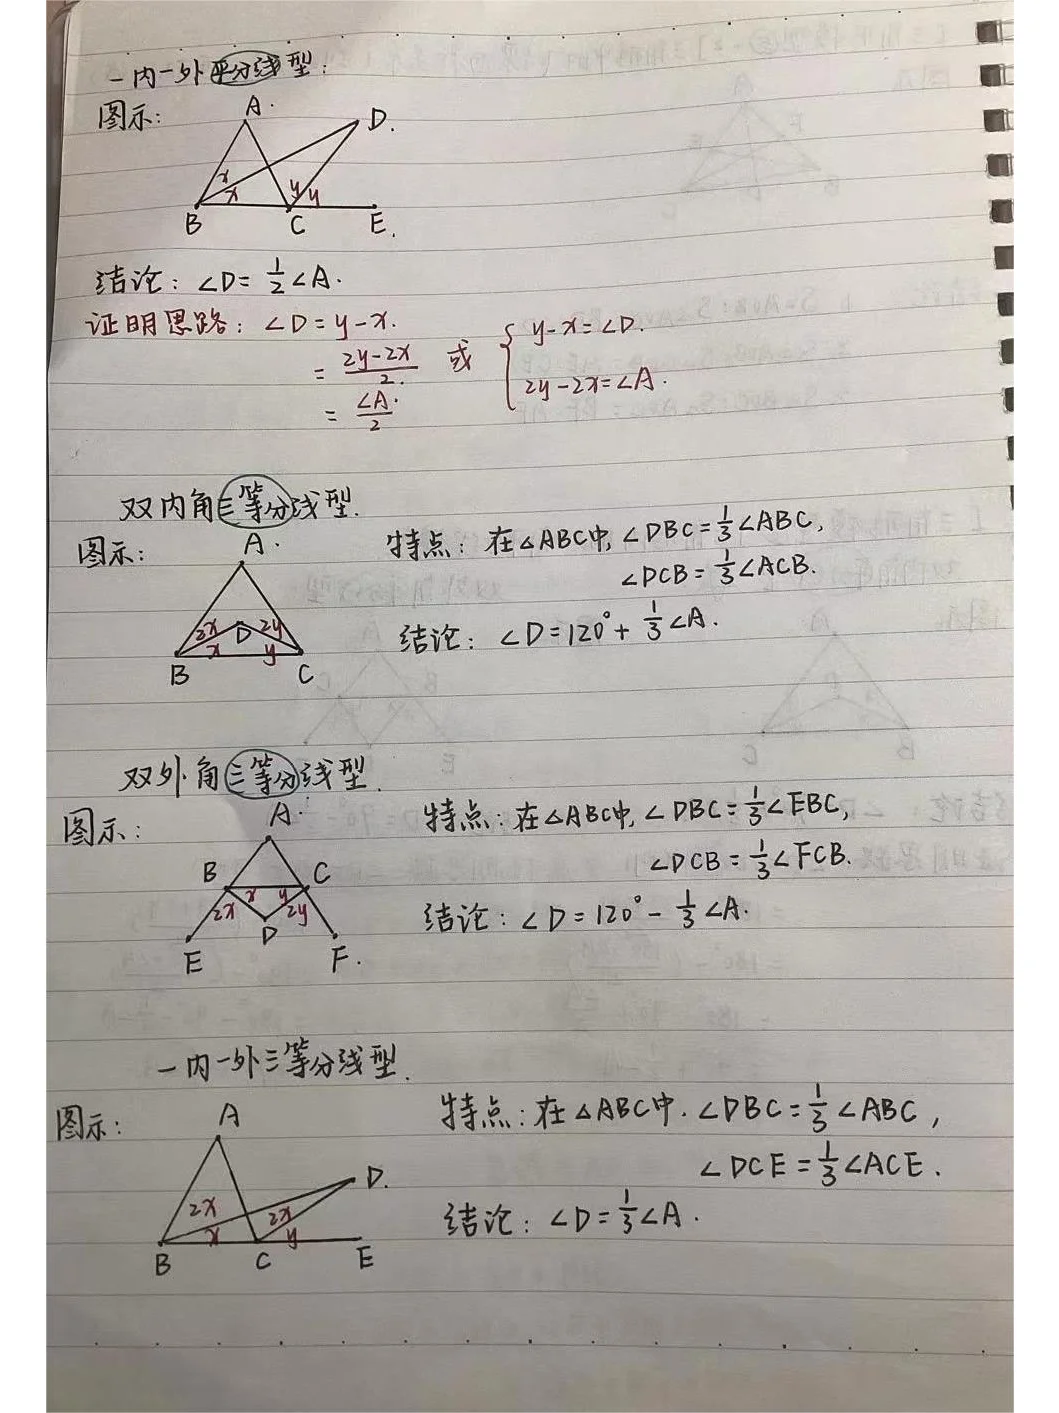 一内一外平分线型：
图示：
A.
D.
x
x
y
y
B
C
E.
结论：∠D=1/2∠A.
证明思路：∠D=y-x.
=(2y-2x)/2.
=∠A./2
或
{y-x=∠D.
2y-2x=∠A.
双内角三等分线型.
图示：
A.
2x
D
2y
x
y
B
C
特点：在△ABC中,∠DBC=1/3∠ABC,
∠DCB=1/3∠ACB.
结论：∠D=120°+1/3∠A.
双外角三等分线型.
图示：
A.
B
C
x
y
2x
2y
D
E
F.
特点：在△ABC中,∠DBC=1/3∠EBC,
∠DCB=1/3∠FCB.
结论：∠D=120°-1/3∠A.
一内一外三等分线型.
图示：
A
D.
2x
2x
x
y
B
C
E
特点：在△ABC中.∠DBC=1/3∠ABC,
∠DCE=1/3∠ACE.
结论：∠D=1/3∠A.